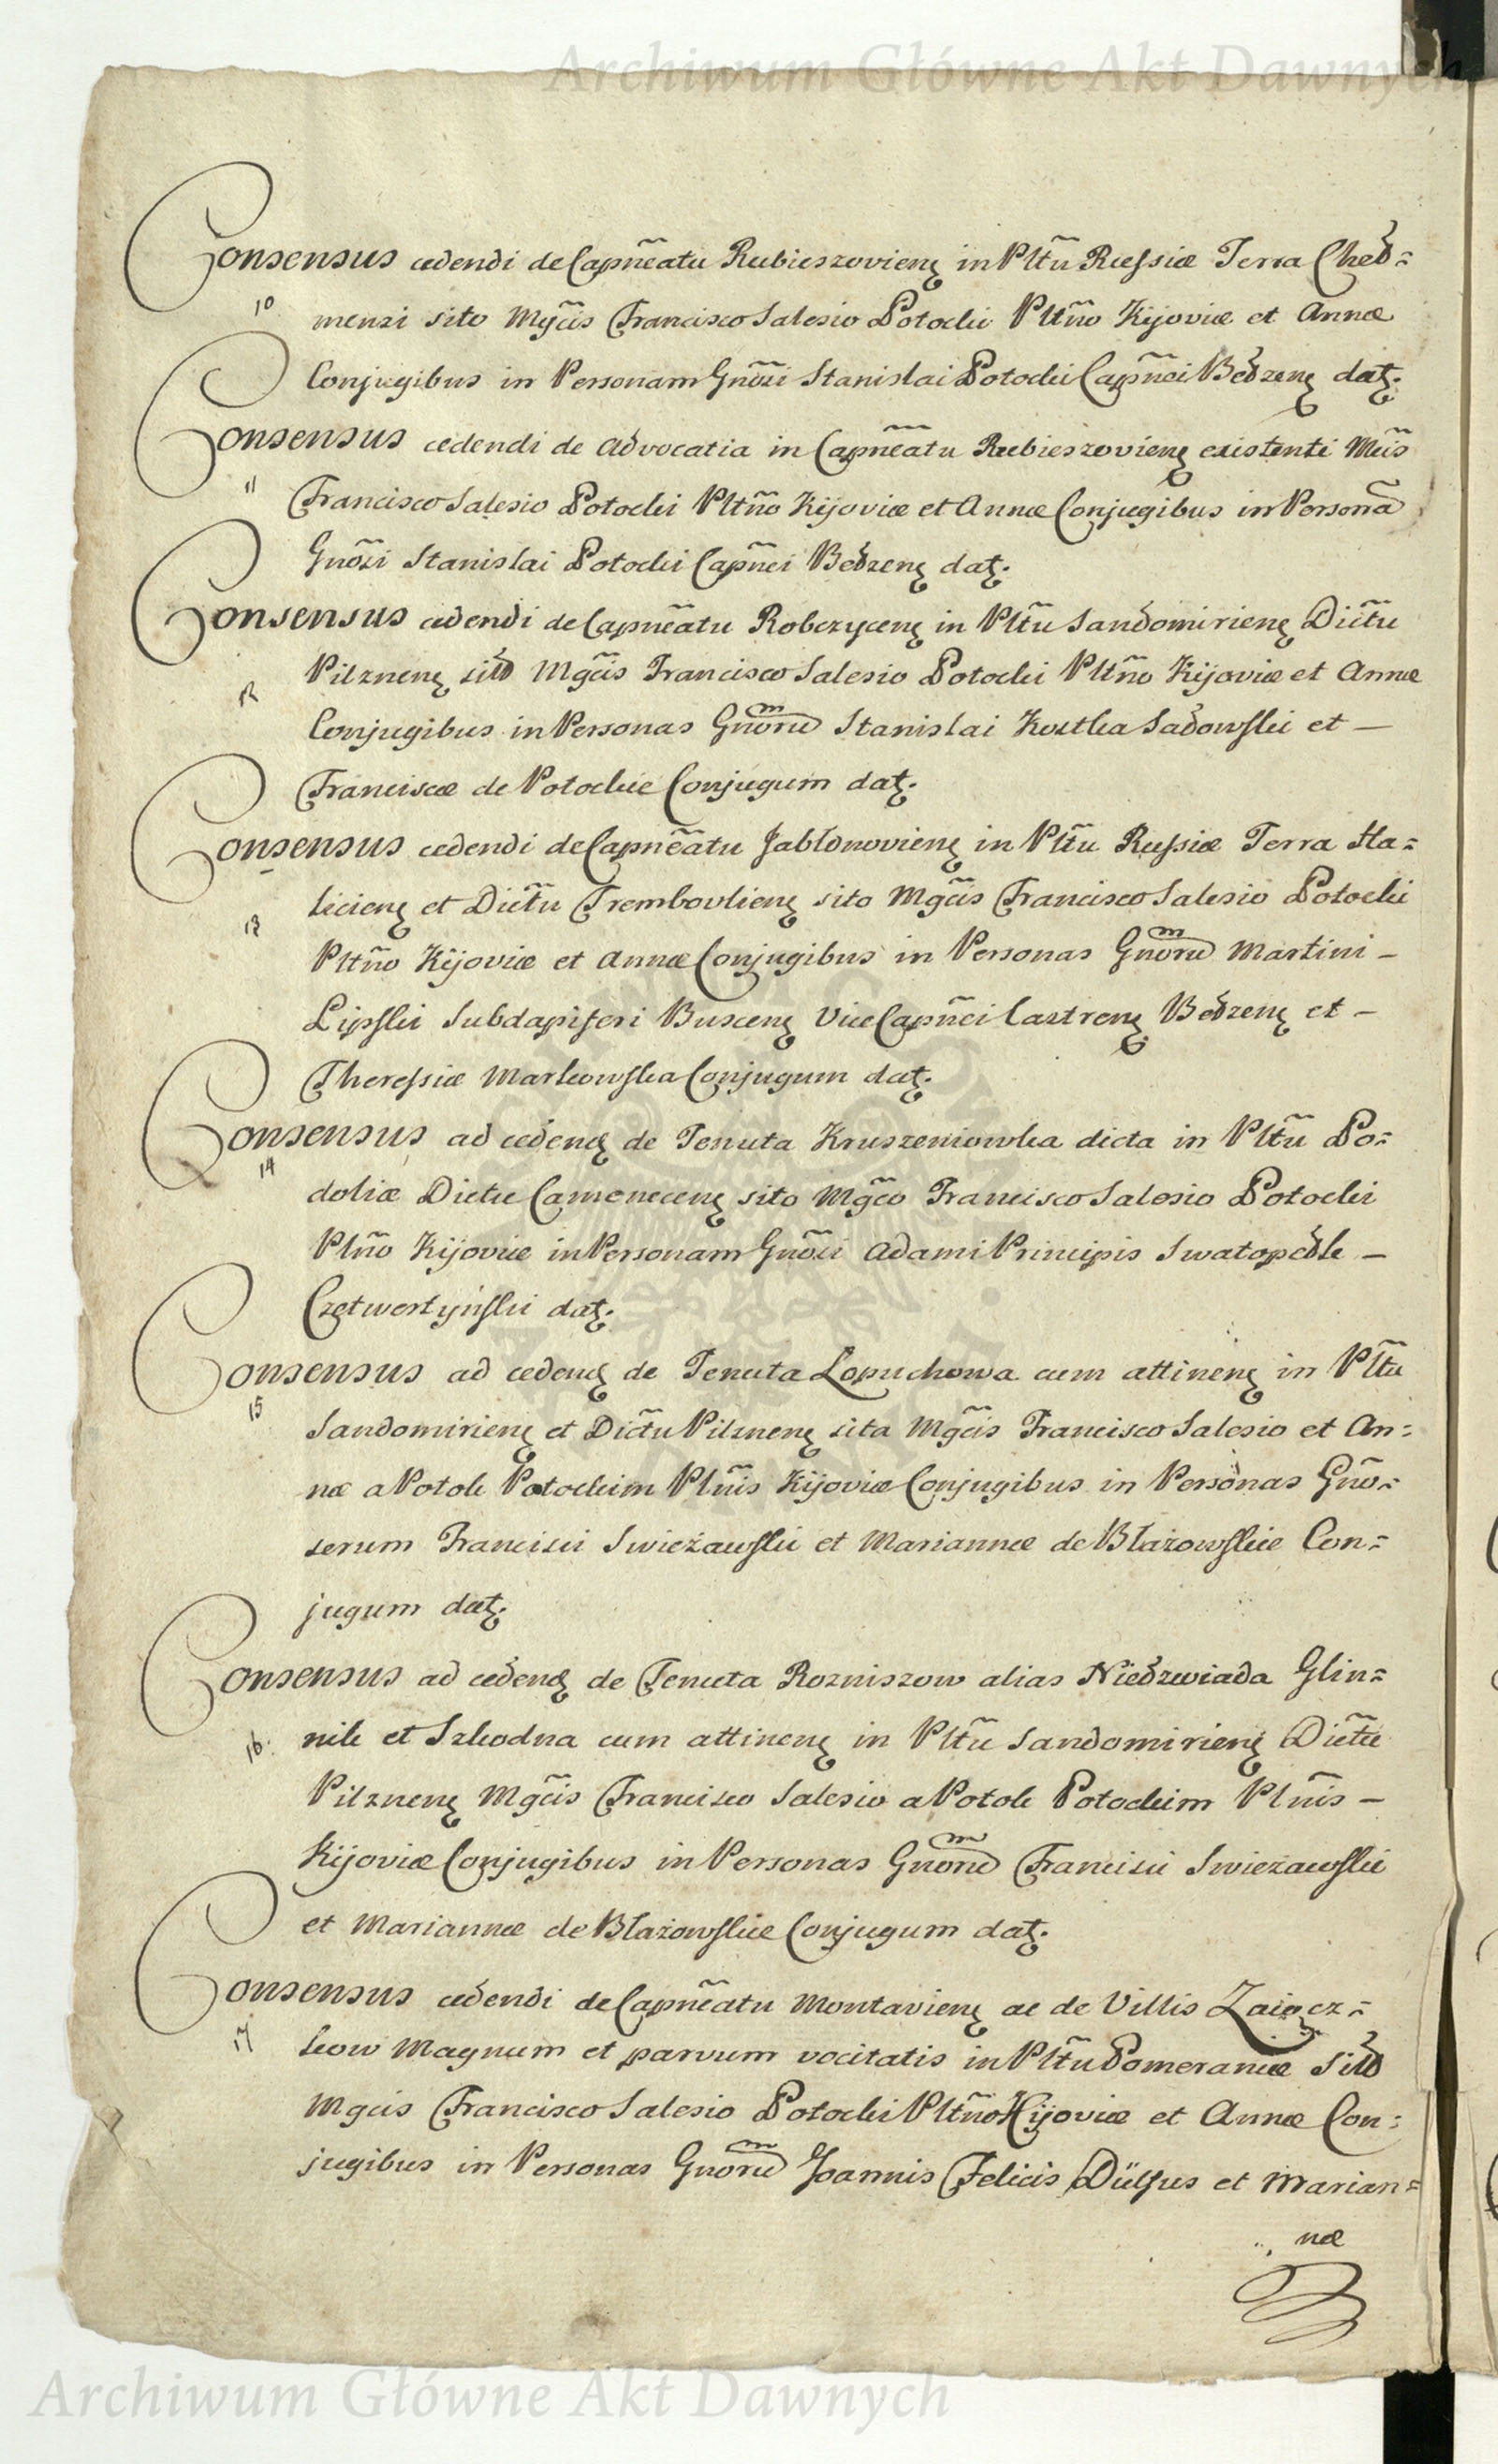 Archiwum Główne Akt Dawnych
Consensus cedendi de Capñeatu Rubieszovienȩ in Pltũ Russiæ Terra Cheł=
10 mensi sito Mgc̃is Francisco Salesio Potocki Pltño Kijoviæ et Annæ
Conjugibus in Personam Gnõsi Stanislai Potocki Capñei Bełzenȩ datȩ.
Consensus cedendi de Advocatia in Capñeatu Rubieszovienȩ existenti Mc̃is
11 Francisco Salesio Potocki Pltño Kijoviæ et Annæ Conjugibus in Personã
Gnõsi Stanislai Potocki Capñei Bełzenȩ datȩ.
Consensus cedendi de Capñeatu Robczycenȩ in Pltũ Sandomirienȩ Dictũ
12 Pilznenȩ sito Mgc̃is Francisco Salesio Potocki Pltño Kijoviæ et Annæ
Conjugibus in Personas Gnõrum Stanislai Kostka Sadowski et —
Franciscæ de Potockie Conjugum datȩ.
Consensus cedendi de Capñeatu Jabłonovienȩ in Pltũ Russiæ Terra Ha=
13 licienȩ et Dictũ Trembovlienȩ sito Mgc̃is Francisco Salesio Potocki
Pltño Kijoviæ et Annæ Conjugibus in Personas Gnõrum Martini —
Lipski Subdapiferi Buscenȩ Vice Capñei Castrenȩ Bełzenȩ et —
Theressiæ Markowska Conjugum datȩ.
Consensus ad cedenȩ de Tenuta Kruszeniowka dicta in Pltũ Po=
14 doliæ Dictu Camenecenȩ sito Mgc̃o Francisco Salesio Potocki
Plño Kijoviæ in Personam Gnõsi Adami Principis Swatopełk —
Czetwertyński datȩ.
Consensus ad cedenȩ de Tenuta Lopuchowa cum attinenȩ in Pltũ
15 Sandomirienȩ et Dictũ Pilznenȩ sita Mgc̃is Francisco Salesio et An=
næ a Potok Potockim Plñis Kijoviæ Conjugibus in Personas Gnõ=
serum Francisci Swieżawski et Mariannæ de Błażowskie Con=
jugum datȩ.
Consensus ad cedenȩ de Tenuta Rozniszow alias Niedzwiada Glin=
16. nik et Szkodna cum attinenȩ in Pltũ Sandomirienȩ Dictũ
Pilznenȩ Mgc̃is Francisco Salesio a Potok Potockim Plñis —
Kijoviæ Conjugibus in Personas Gnõrum Francisci Swieżawski
et Mariannæ de Błażowskie Conjugum datȩ.
Consensus cedendi de Capñeatu Montavienȩ ac de Villis Zaiącz=
17 kow Magnum et parvum vocitatis in Pltũ Pomeraniæ sito
Mgcis Francisco Salesio Potocki Pltño Kijoviæ et Annæ Con=
jugibus in Personas Gnõrum Joannis Felicis Dülfus et Marian=
næ
Archiwum Główne Akt Dawnych